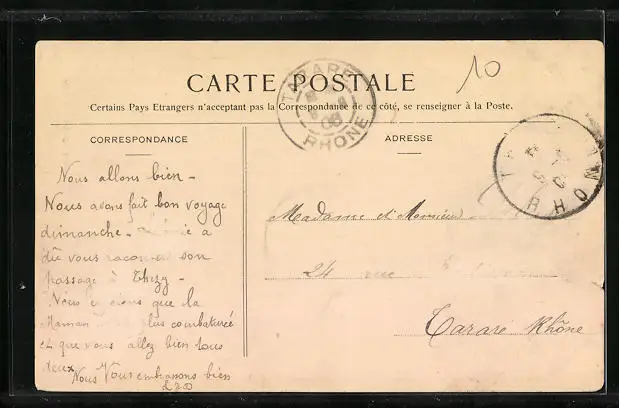 10
CARTE POSTALE
Certains Pays Etrangers n'acceptant pas la Correspondance de ce côté, se renseigner à la Poste.
TARARE
08
RHONE
CORRESPONDANCE
Nous allons bien -
Nous avons fait bon voyage
dimanche - a
dû vous raconter son
passage à Thizy -
Nous que la
Maman plus courbaturée
et que vous allez bien tous
deux
Nous Vous embrassons bien
ADRESSE
RHO
Madame et Monsieur
24 rue
Tarare Rhône